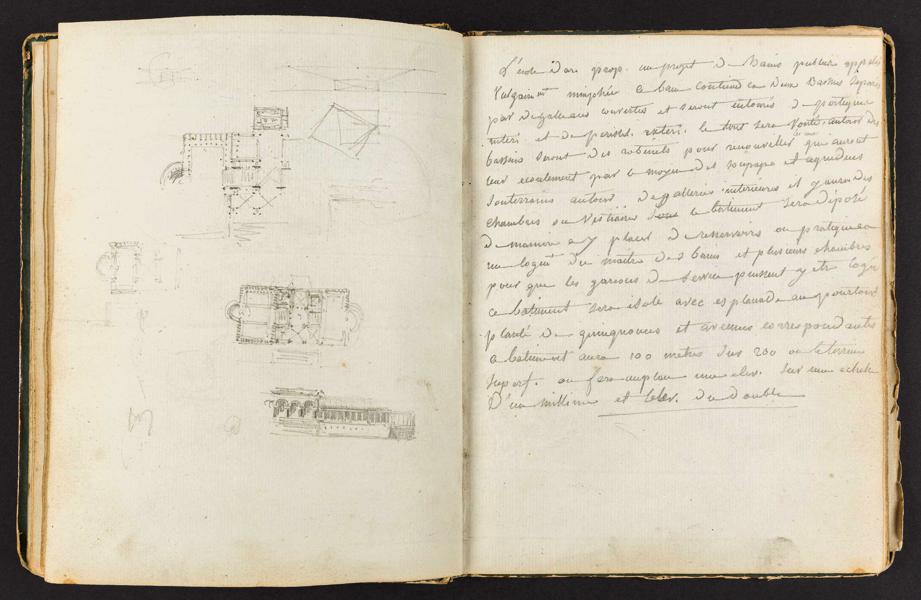 L'école d'arc. prop. un projet de Bains publics appelés
Vulgairement nimphée le bain contiendra deux Bassins séparés
par des galleries ouvertes et seront entourés de portiques
intéri. et de peristi. extéri. le tout sera voûté. autour des
bassins seront des robinets pour renouveller qui auront
leur ecoulement par le moyen des soupapes et aqueducs
souterrains autour des galleries interieures il y aura des
chambres ou Vestiaires le batiment sera disposé
de maniere a y placer des reservoirs on pratiquera
un logemt du maitre des bains et plusieurs chambres
pour que les garcons de service puissent y etre logés
ce batiment sera isolé avec esplanade au pourtour
planté de quinconces et avenues correspondantes
le batiment aura 100 metres sur 200 de terrain
superf. on fera un plan une elev. sur une echelle
D'un millime et l'elev. du double